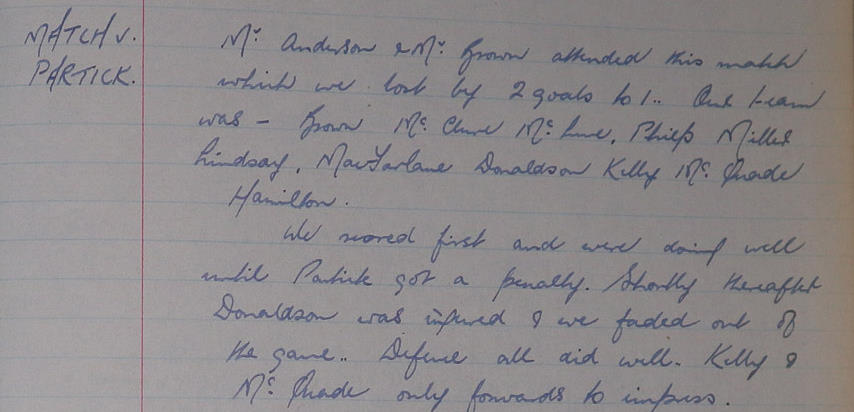 MATCH V.
PARTICK.
Mr. Anderson & Mr. Brown attended this match
which we lost by 2 goals to 1.. Our team
was - Brown Mc. Clure Mc. Lure, Philp Miller
Lindsay, MacFarlane Donaldson Kelly Mc. Quade
Hamilton.
We scored first and were doing well
until Partick got a penalty. Shortly thereafter
Donaldson was injured & we faded out of
the game.. Defence all did well. Kelly &
Mc. Quade only forwards to impress.